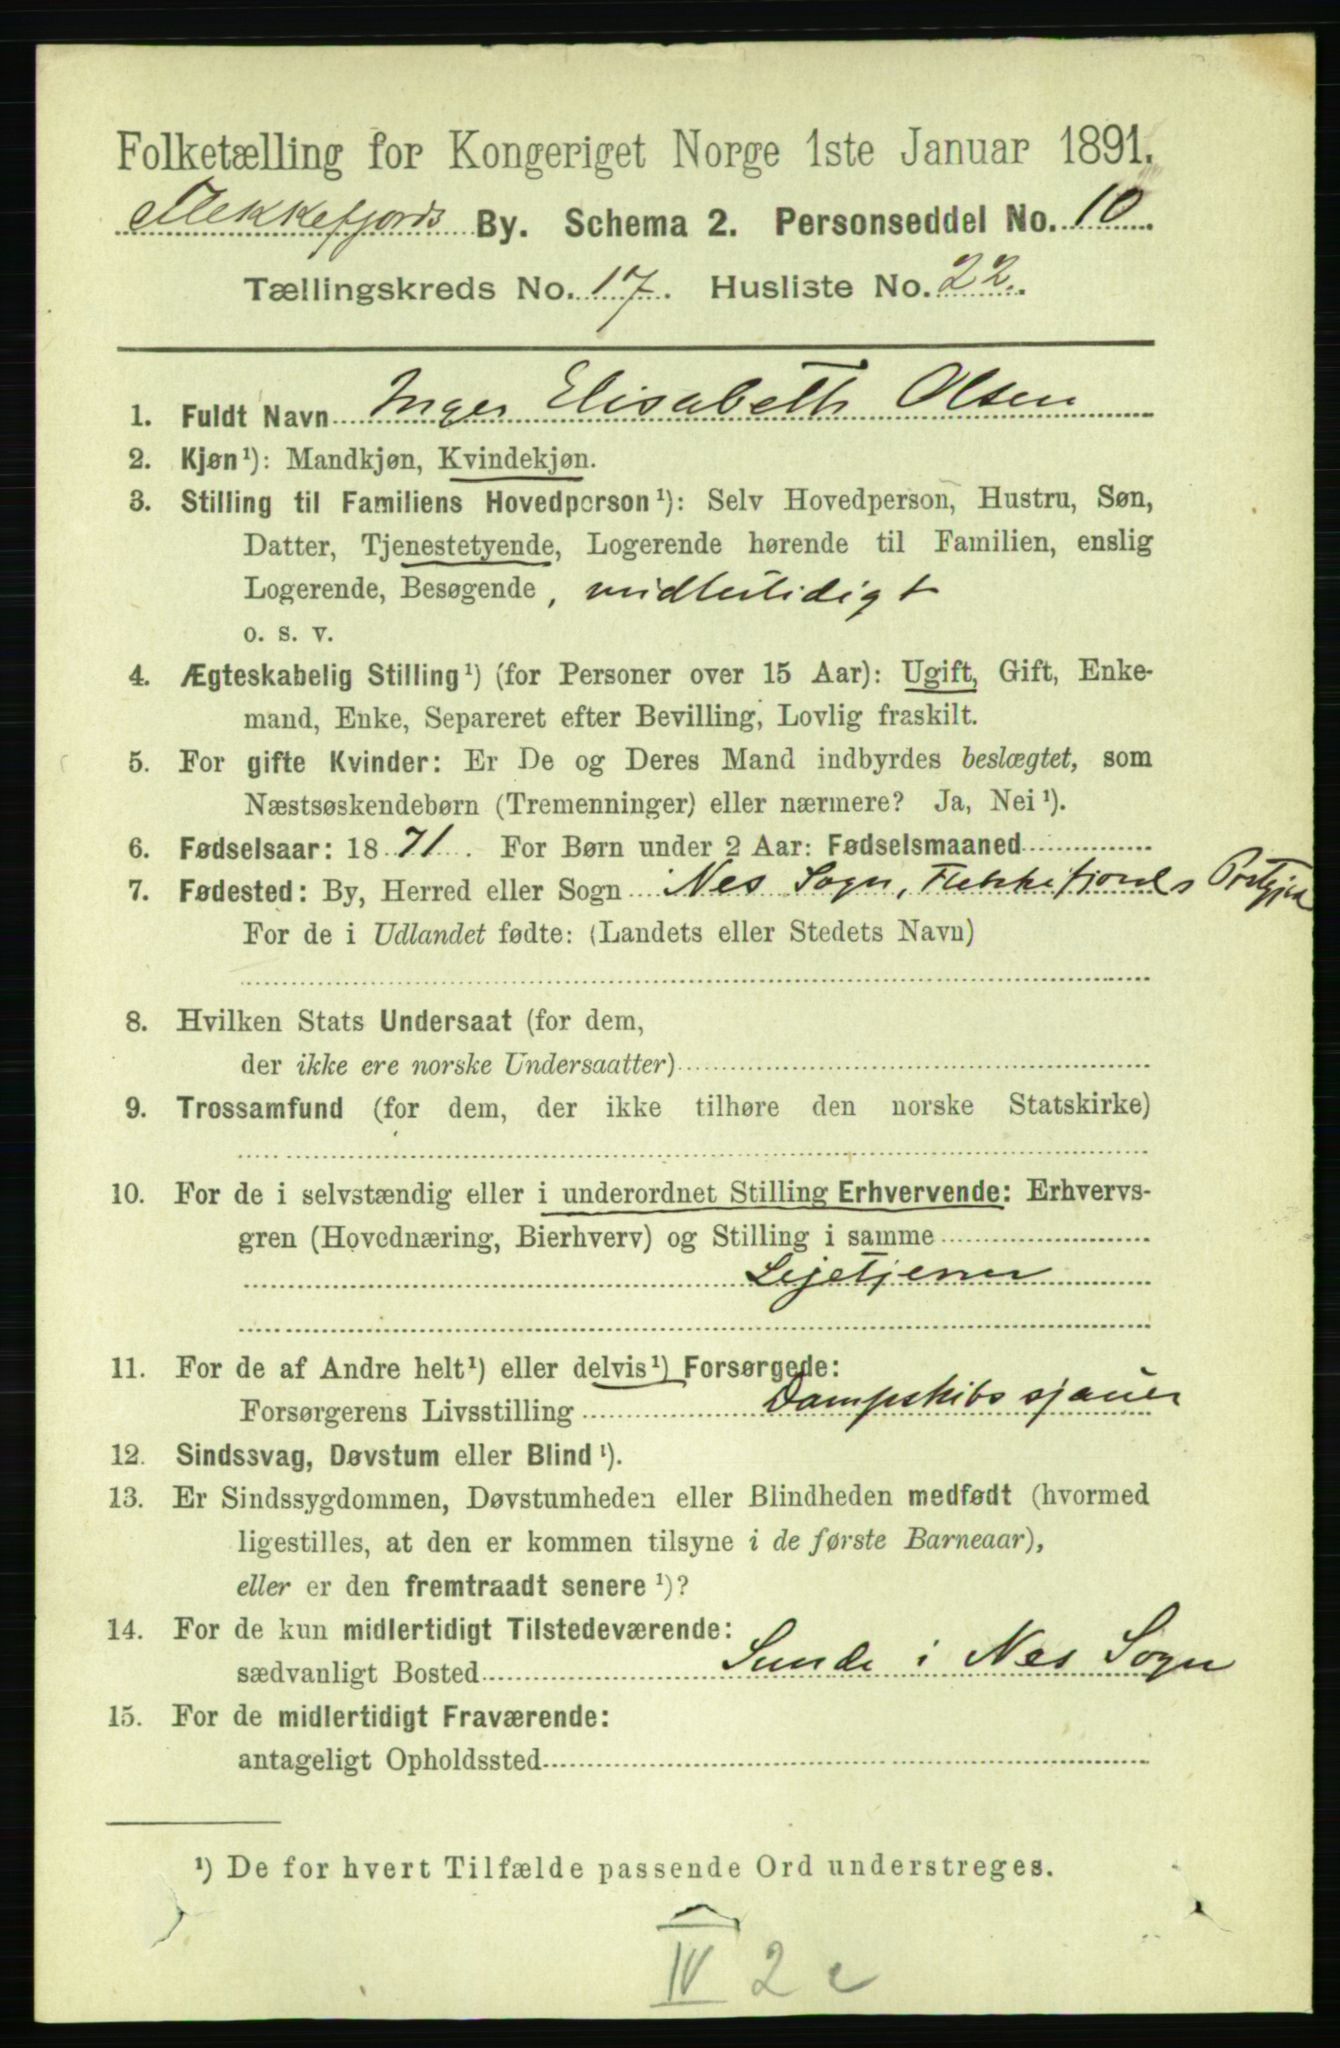 Folketælling for Kongeriget Norge 1ste Januar 1891.
Flekkefjords By. Schema 2. Personseddel No. 10.
Tællingskreds No. 17. Husliste No. 22.
1. Fuldt Navn Inger Elisabeth Olsen
2. Kjøn¹): Mandkjøn, Kvindekjøn.
3. Stilling til Familiens Hovedperson¹): Selv Hovedperson, Hustru, Søn,
Datter, Tjenestetyende, Logerende hørende til Familien, enslig
Logerende, Besøgende, midlertidigt
o. s. v.
4. Ægteskabelig Stilling¹) (for Personer over 15 Aar): Ugift, Gift, Enke-
mand, Enke, Separeret efter Bevilling, Lovlig fraskilt.
5. For gifte Kvinder: Er De og Deres Mand indbyrdes beslægtet, som
Næstsøskendebørn (Tremenninger) eller nærmere? Ja, Nei¹).
6. Fødselsaar: 1871. For Børn under 2 Aar: Fødselsmaaned
7. Fødested: By, Herred eller Sogn Nes Sogn, Flekkefjords
For de i Udlandet fødte: (Landets eller Stedets Navn)
8. Hvilken Stats Undersaat (for dem,
der ikke ere norske Undersaatter)
9. Trossamfund (for dem, der ikke tilhøre den norske Statskirke)
10. For de i selvstændig eller i underordnet Stilling Erhvervende: Erhvervs-
gren (Hovednæring, Bierhverv) og Stilling i samme
Lejetjener
11. For de af Andre helt¹) eller delvis¹) Forsørgede:
Forsørgerens Livsstilling Dampskibssjauer
12. Sindssvag, Døvstum eller Blind¹).
13. Er Sindssygdommen, Døvstumheden eller Blindheden medfødt (hvormed
ligestilles, at den er kommen tilsyne i de første Barneaar),
eller er den fremtraadt senere¹)?
14. For de kun midlertidigt Tilstedeværende:
sædvanligt Bosted Sunde i Nes Sogn
15. For de midlertidigt Fraværende:
antageligt Opholdssted
¹) De for hvert Tilfælde passende Ord understreges.
IV 2 c